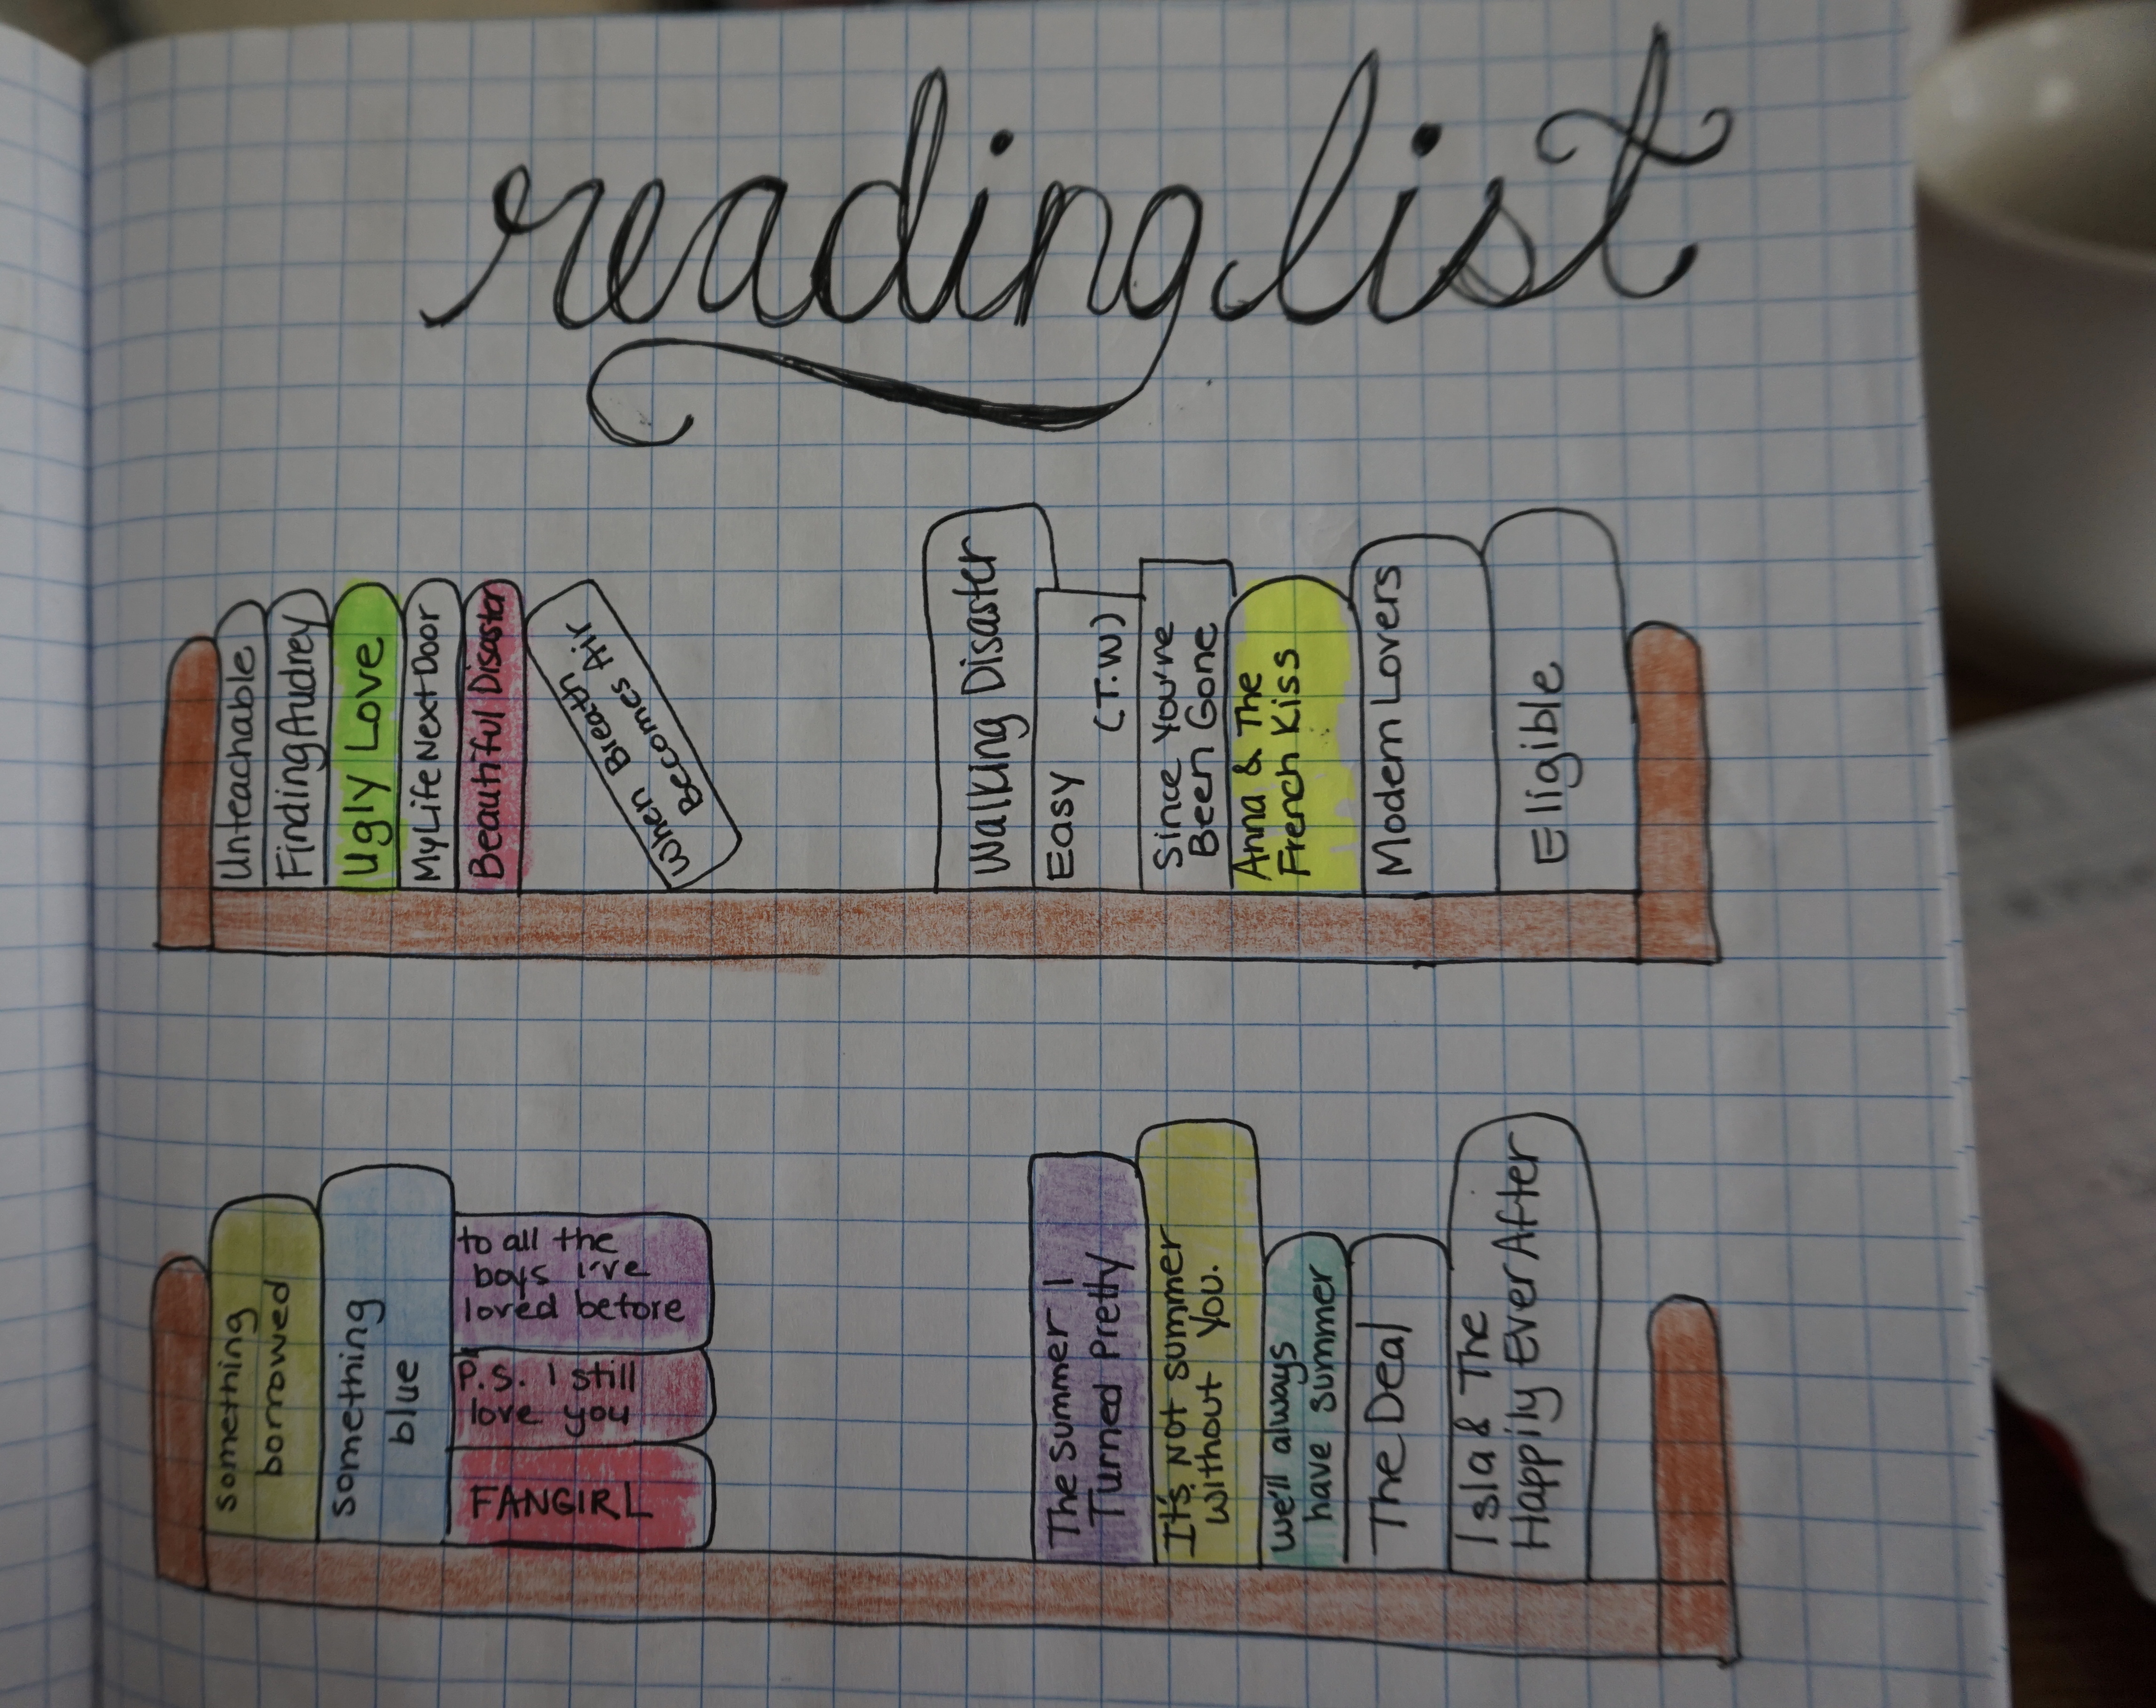 reading list
Unteachable
Finding Audrey
Ugly Love
My Life Next Door
Beautiful Disaster
When Breath
Becomes Air
Walking Disaster
Easy
(T.W)
Since You've
Been Gone
Anna & The
French Kiss
Modern Lovers
Eligible
something
borrowed
something
blue
to all the
boys i've
loved before
P.S. I still
love you
FANGIRL
The summer I
Turned Pretty
It's not summer
without you.
we'll always
have summer
The Deal
Isla & The
Happily Ever After